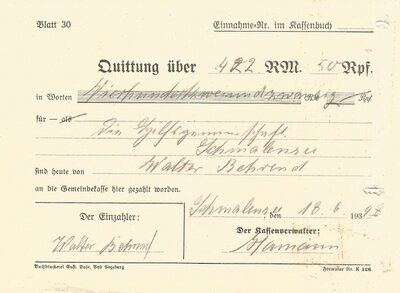 Blatt 30 Einnahme-Nr. im Kassenbuch
Quittung über 422 RM. 50 Rpf.
in Worten Vierhundertzweiundzwanzig RM Rpf
für als
Die Jagdgenossenschaft
Schmalensee
sind heute von Walter Behrend
an die Gemeindekasse hier gezahlt worden.
Schmalensee, den 18. 6 193
Der Einzahler:
Der Kassenverwalter:
Walter Behrend
Hamann
Buchdruckerei Gust. Dose, Bad Segeberg Formular Nr. K 126